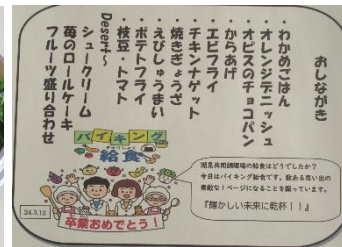 おしながき
・わかめごはん
・オレンジデニッシュ
・オビスのチョコパン
・からあげ
・エビフライ
・チキンナゲット
・焼きぎょうざ
・えびしゅうまい
・ポテトフライ
・枝豆・トマト
Desert～
シュークリーム
苺のロールケーキ
フルーツ盛り合わせ
バイキング
給食
潮見共同調理場の給食はどうでしたか?
今日はバイキング給食です。数ある思い出の
素敵な1ページになることを願っています。
『輝かしい未来に乾杯!!』
卒業おめでとう!
24.3.13